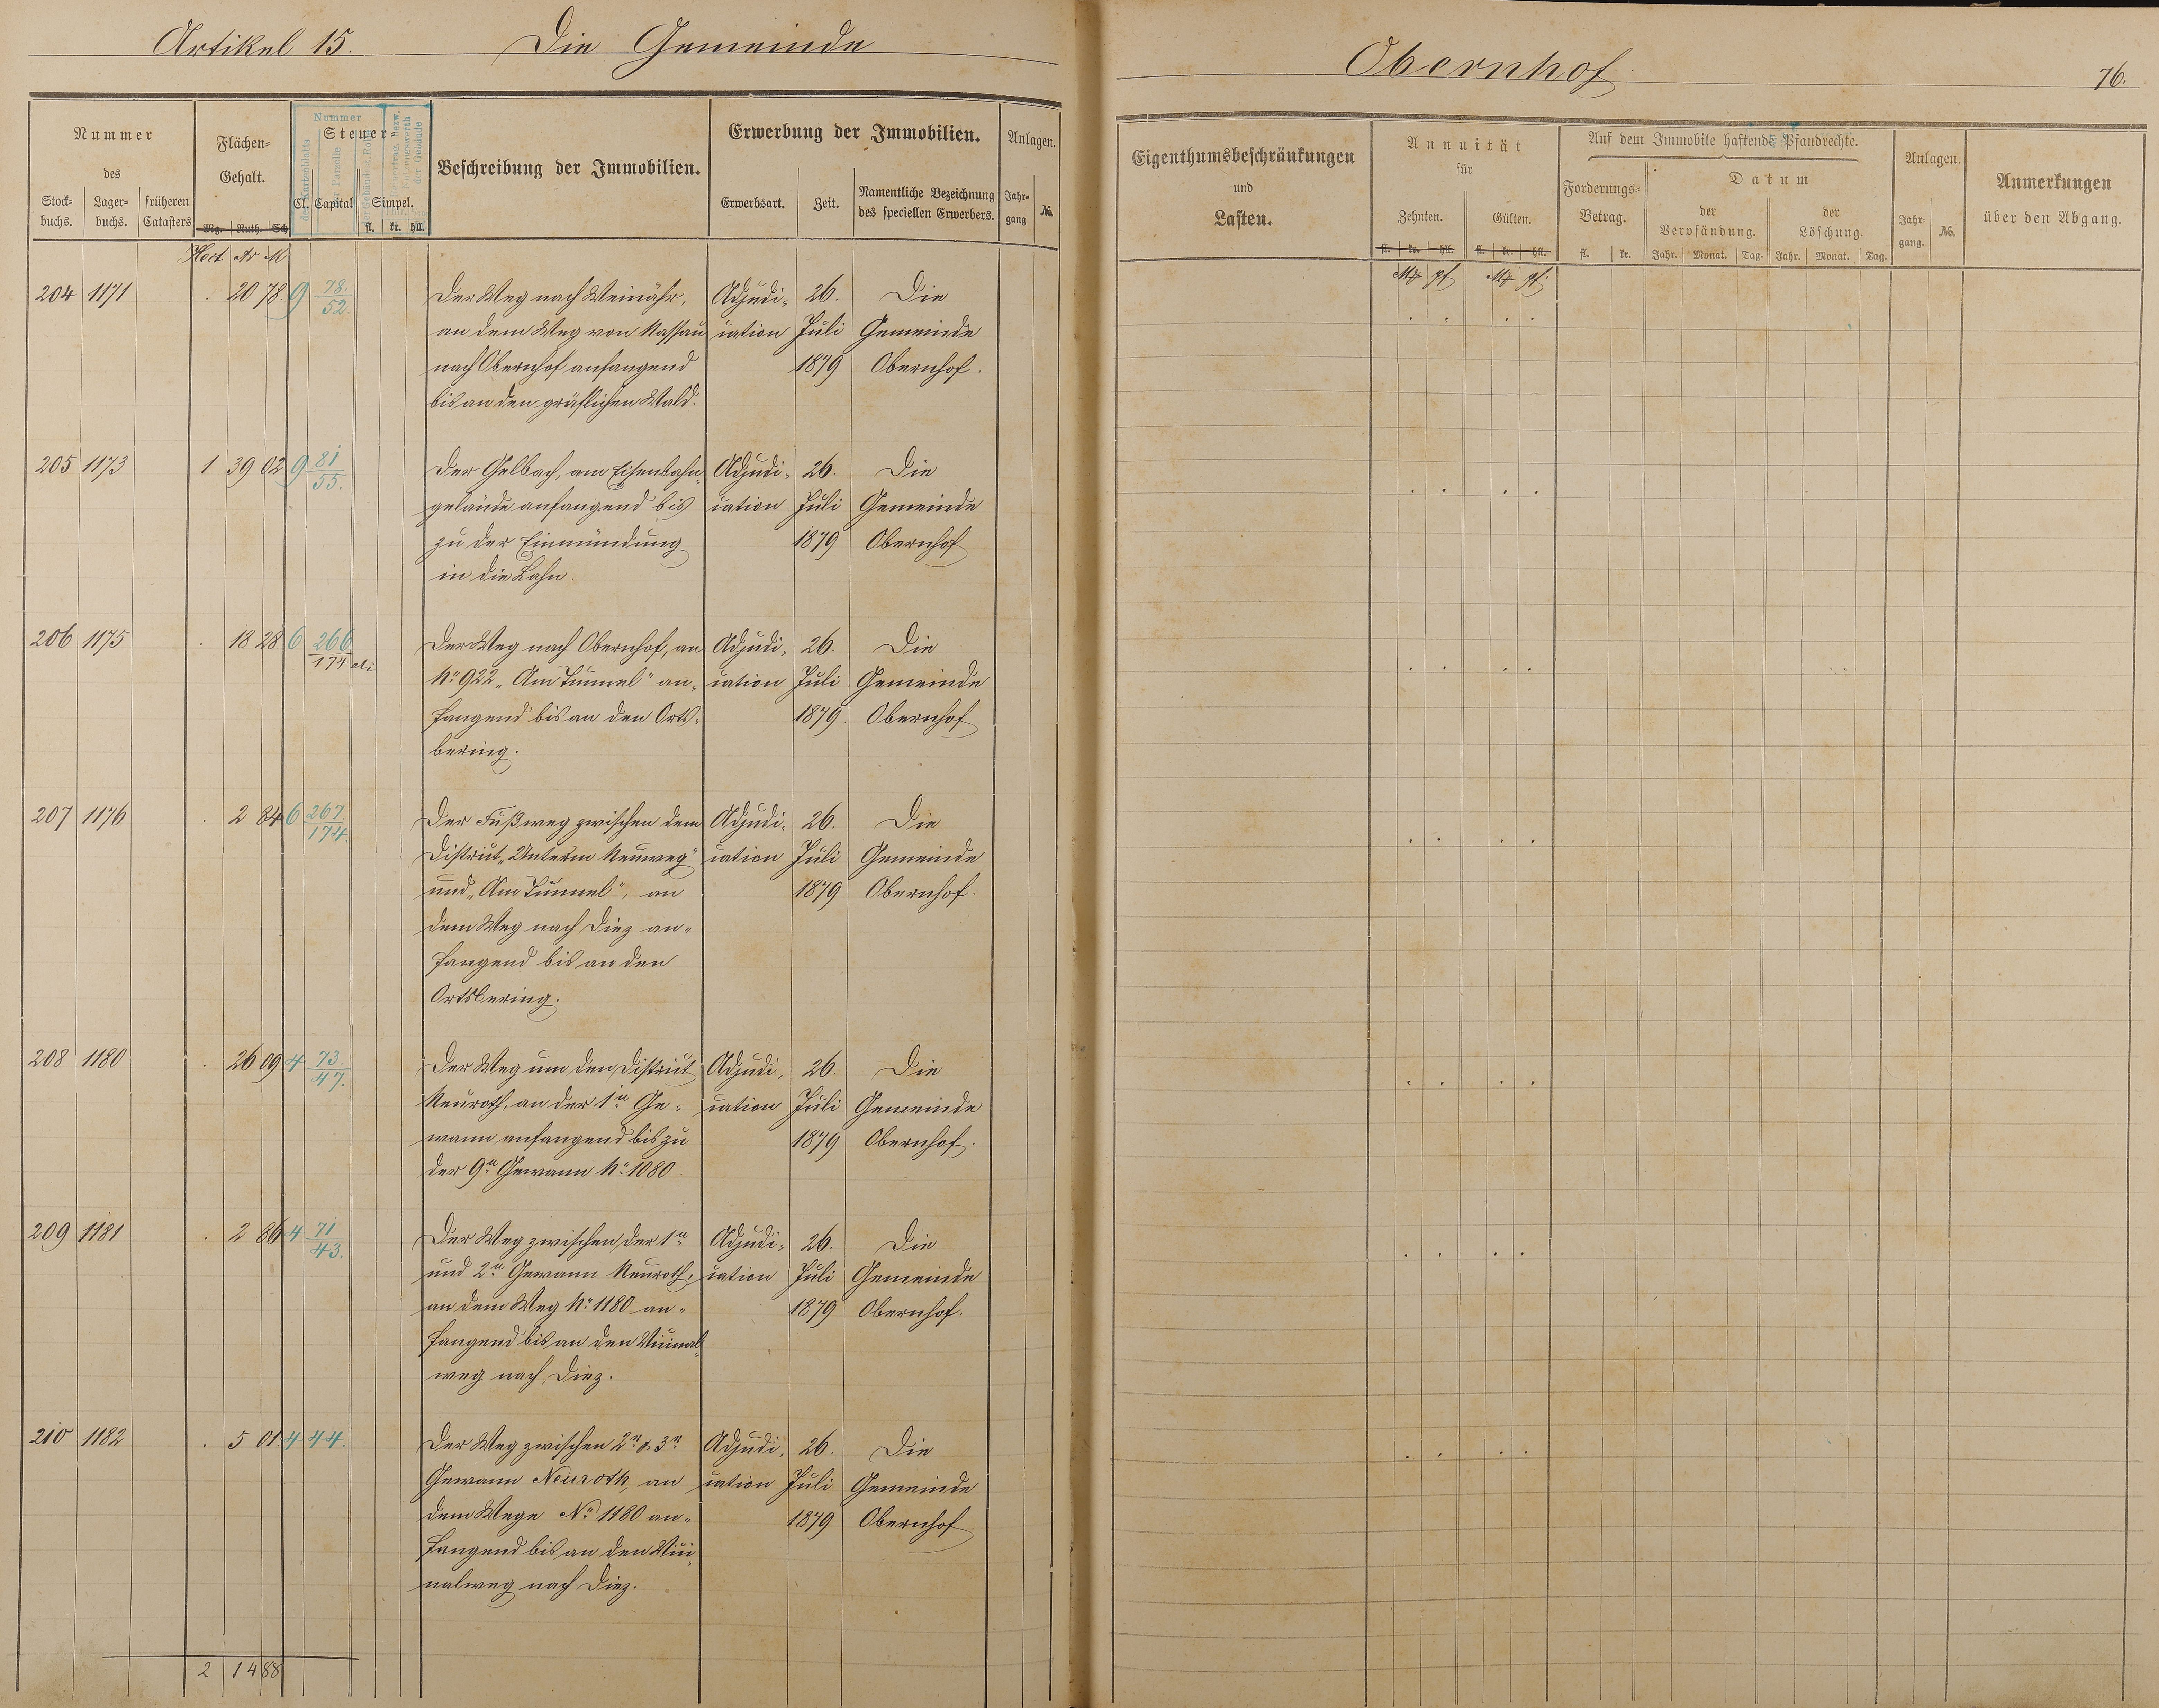 Artikel 15. Die Gemeinde
Obernhof
76.
Nummer des
Stock-buchs. Lager-buchs. früheren Catasters
Flächen-Gehalt.
Mg. Ruth. Sch
Hect Ar M.
Nummer
Steuer-
Cl. Capital Simpel.
fl. kr. hll.
Beschreibung der Immobilien.
Erwerbung der Immobilien.
Erwerbsart. Zeit. Namentliche Bezeichnung des speciellen Erwerbers.
Anlagen.
Jahr-gang №
Eigenthumsbeschränkungen
und
Lasten.
Annuität
für
Zehnten. Gülten.
fl. kr. hll. fl. kr. hll.
Mg pf Mg pf.
Auf dem Immobile haftende Pfandrechte.
Forderungs-Betrag.
fl. kr.
Datum
der Verpfändung. der Löschung.
Jahr. Monat. Tag. Jahr. Monat. Tag.
Anlagen.
Jahr-gang. №.
Anmerkungen
über den Abgang.
204 1171 . 20 78. 9 78./52. Der Weg nach Weinähr, Adjudi- 26. Die
an dem Weg von Nassau cation Juli Gemeinde
nach Obernhof anfangend 1879 Obernhof.
bis an den gräflichen Wald.
205 1173 1 39 02 9 81/55. Der Gelbach, am Eisenbahn- Adjudi- 26. Die
gelände anfangend bis cation Juli Gemeinde
zu der Einmündung 1879 Obernhof
in die Lahn.
206 1175 . 18 28 6 266/174 etc Der Weg nach Obernhof, an Adjudi- 26. Die
No 922 „Am Tunnel" an- cation Juli Gemeinde
fangend bis an den Orts- 1879. Obernhof
bering.
207 1176 . 2 84 6 267./174. Der Fußweg zwischen dem Adjudi- 26. Die
District „Unterm Neuweg" cation Juli Gemeinde
und „Am Tunnel", an 1879 Obernhof.
dem Weg nach Diez an-
fangend bis an den
Ortsbering.
208 1180 . 26 09 4 73/47. Der Weg um den District Adjudi- 26. Die
Neuroth, an der 1n Ge- cation Juli Gemeinde
wann anfangend bis zu 1879 Obernhof.
der 9n Gewann No 1080.
209 1181 . 2 86 4 71/43. Der Weg zwischen der 1n Adjudi- 26. Die
und 2n Gewann Neuroth, cation Juli Gemeinde
an dem Weg No 1180 an- 1879 Obernhof.
fangend bis an den Vicinal-
weg nach Diez.
210 1182 . 5 01 4 44. Der Weg zwischen 2r & 3r Adjudi- 26. Die
Gewann Neuroth, an cation Juli Gemeinde
dem Wege No 1180 an- 1879 Obernhof
fangend bis an den Vici-
nalweg nach Diez.
2 14 88